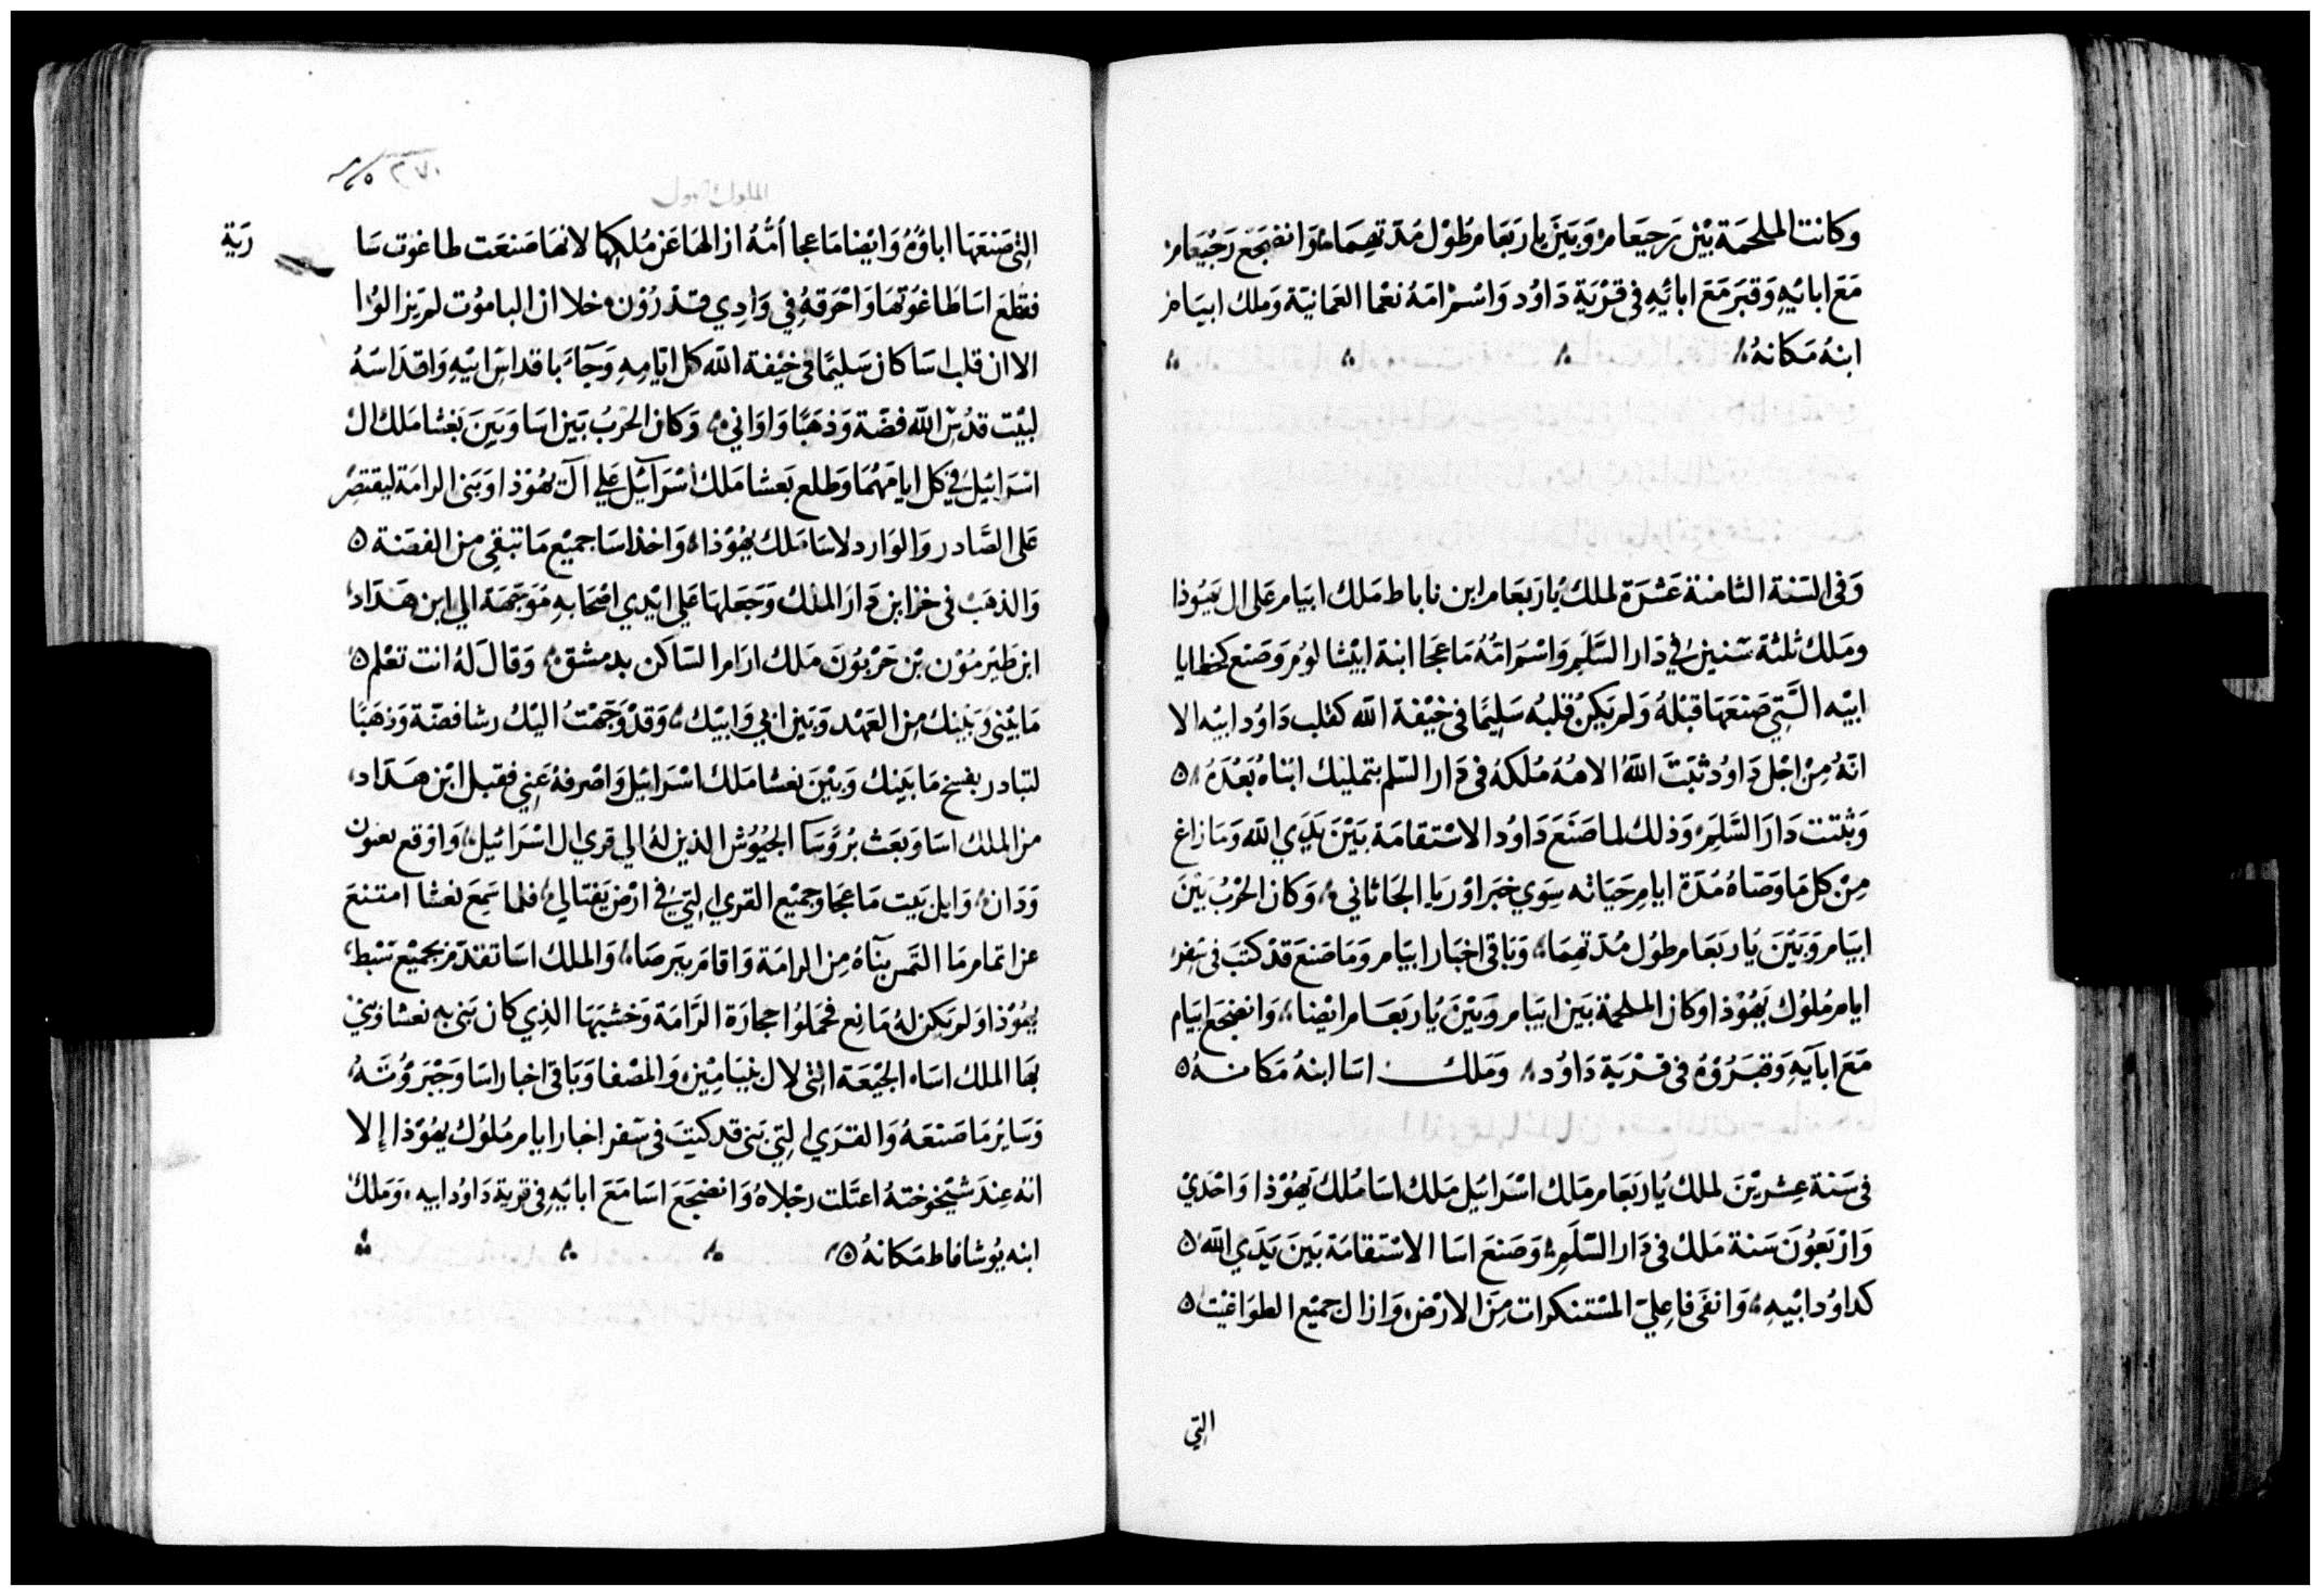 وكانت الملحمة بين رحيعام وبين ياربعام طول مدتهما وانضجع رحيعام
مع ابائه وقبر مع ابائه في قرية داود واسم امه نعما العمانية وملك ابيام
ابنه مكانه
وفي السنة الثامنة عشرة لملك ياربعام ابن ناباط ملك ابيام على ال يهوذا
وملك ثلثة سنين في دار السلم واسم امه ماعجا ابنة ابيشالوم وصنع كخطايا
ابيه التي صنعها قبله ولم يكن قلبه سليما في خيفة الله كقلب داود ابيه الا
انه من اجل داود ثبت الله الاهه ملكه في دار السلم بتمليك ابناه بعده
وثبتت دار السلم وذلك لما صنع داود الاستقامة بين يدي الله وما زاغ
من كل ما وصاه مدة ايام حياته سوي خبر اوريا الحاثاني وكان الحرب بين
ابيام وبين ياربعام طول مدتهما وباقي اخبار ابيام وما صنع قد كتب في سفر
ايام ملوك يهوذا وكان الملحمة بين ابيام وبين ياربعام ايضا وانضجع ابيام
مع ابآيه وقبروه في قرية داود وملك اسا ابنه مكانه
في سنة عشرين لملك ياربعام ملك اسرائيل ملك اسا ملك يهوذا واحدي
واربعون سنة ملك في دار السلم وصنع اسا الاستقامة بين يدي الله
كداود ابيه وانفى فاعلي المستنكرات من الارض وازال جميع الطواغيت
التي
الملوك الاول
٢٧٠
التي صنعها اباؤه وايضا ماعجا امه ازالها عن ملكها لانها صنعت طاغوت سا
رية
فقطع اسا طاغوتها واحرقه في وادي قدرون خلا ان الباموت لم يزالوا
الا ان قلب اسا كان سليما في خيفة الله كل ايامه وجآء باقداس ابيه واقداسه
لبيت قدس الله فضة وذهبا واواني وكان الحرب بين اسا وبين بعشا ملك ال
اسرائيل في كل ايامهما وطلع بعشا ملك اسرآئيل علي آل يهوذا وبنى الرامة ليقتصر
على الصادر والوارد لاسا ملك يهوذا واخذ اسا جميع ما تبقي من الفضة
والذهب في خزاين دار الملك وجعلها علي ايدي اصحابه موجهة الي ابن هداد
ابن طبرمون بن حزيون ملك ارام الساكن بدمشق وقال له انت تعلم
ما بيني وبينك من العهد وبين ابي وابيك وقد وجهت اليك رشا فضة وذهبا
لتبادر بفسخ ما بينك وبين بعشا ملك اسرائيل واصرفه عني فقبل ابن هداد
من الملك اسا وبعث برؤسآ الجيوش الذين له الي قري ال اسرائيل واوقع بعيون
ودان وابل بيت ماعجا وجميع القري التي في ارض نفتالي فلما سمع بعشا امتنع
عن اتمام ما التمس بنآه من الرامة واقام بترصاه والملك اسا تقدم بجميع سبط
يهوذا ولم يكن له مانع فحملوا حجارة الرامة وخشبها الذي كان بنى به بعشا وبني
بها الملك اسا الجيعة التي لال بنيامين والمصفا وباقي اخبار اسا وجبروته
وساير ما صنعه والقري التي بنى قد كتبت في سفر اخبار ايام ملوك يهوذا إلا
انه عند شيخوخته اعتلت رجلاه وانضجع اسا مع ابائه في قرية داود ابيه وملك
ابنه يوشافاط مكانه